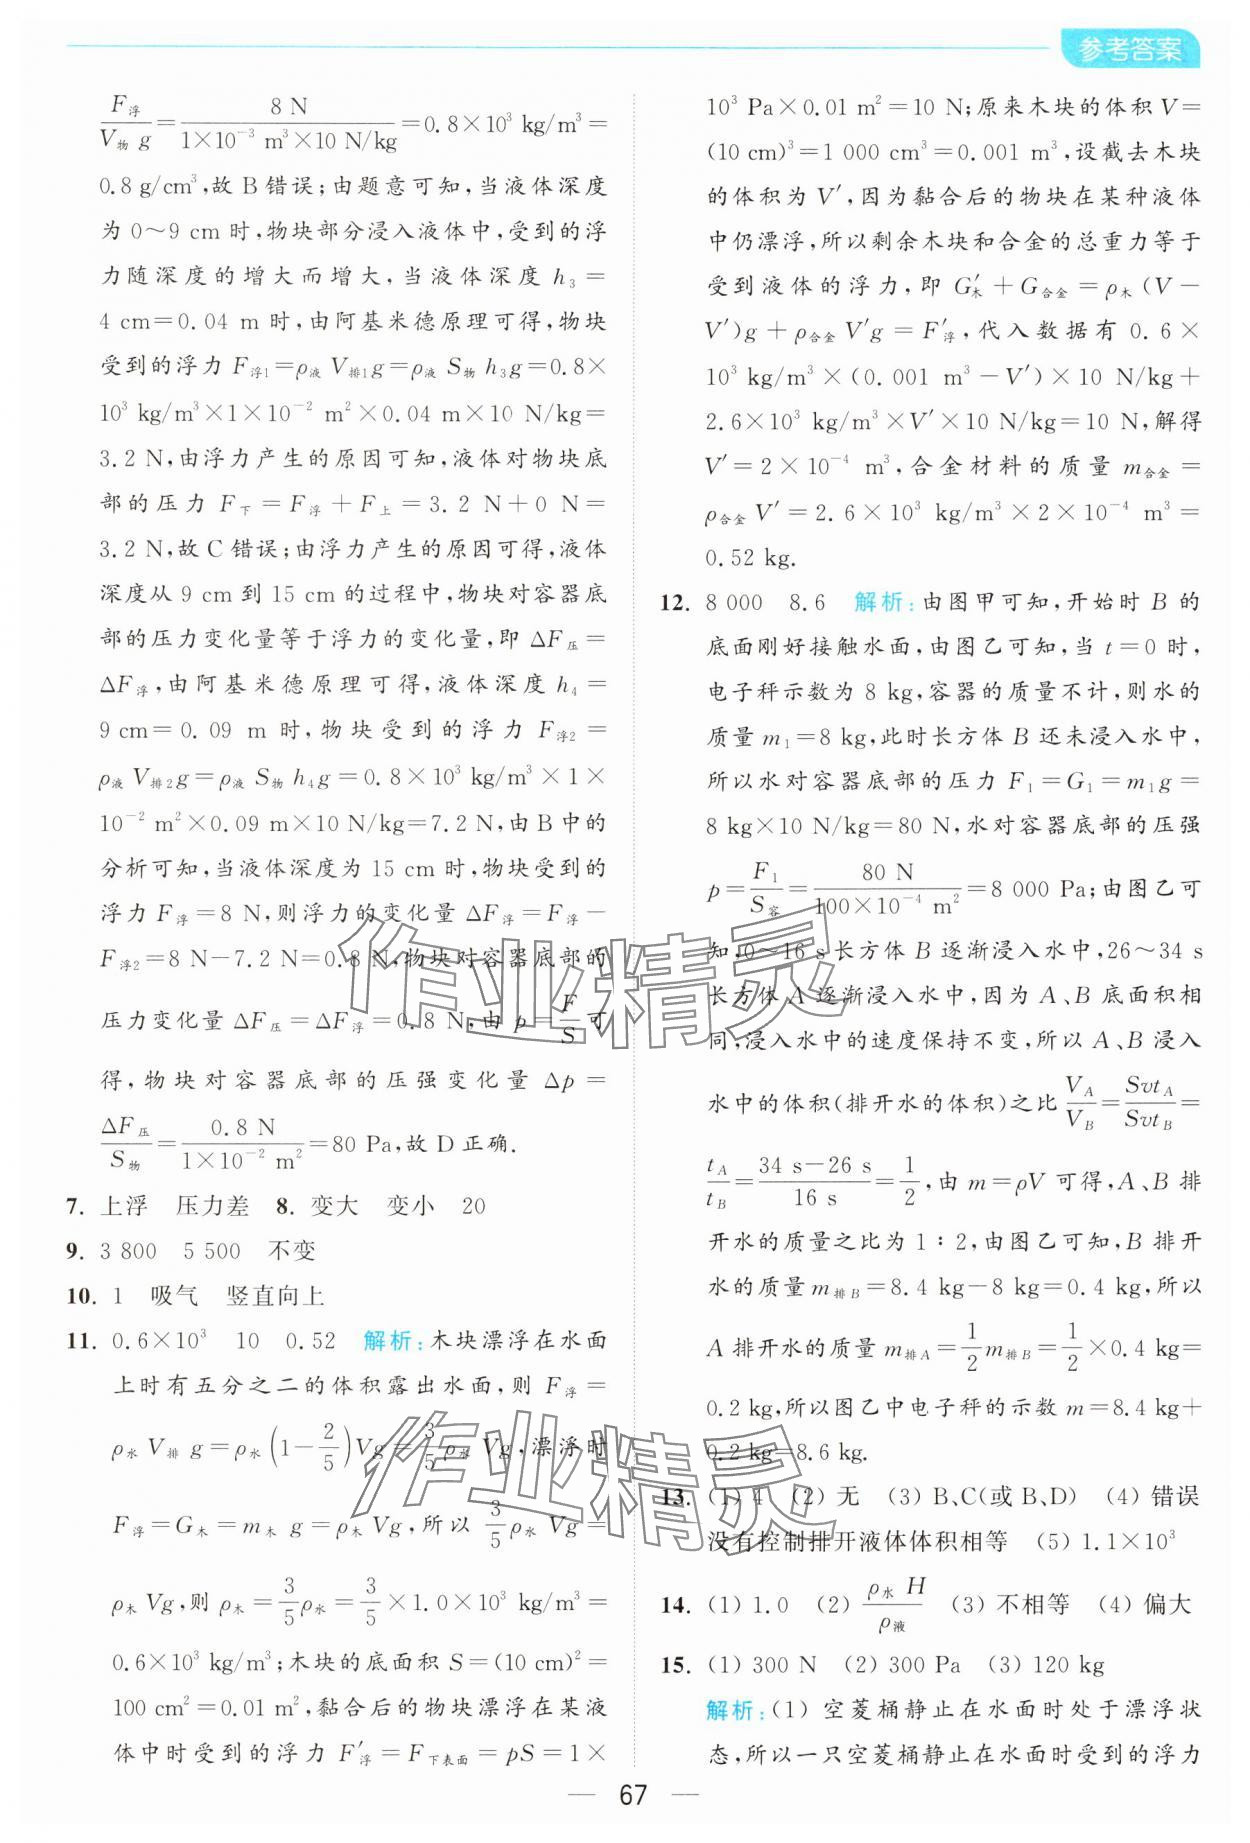 参考答案
F浮/V物 g=8 N/1×10⁻³ m³×10 N/kg=0.8×10³ kg/m³=
0.8 g/cm³,故 B 错误;由题意可知,当液体深度
为 0～9 cm 时,物块部分浸入液体中,受到的浮
力随深度的增大而增大,当液体深度 h₃=
4 cm=0.04 m 时,由阿基米德原理可得,物块
受到的浮力 F浮1=ρ液 V排1g=ρ液 S物 h₃g=0.8×
10³ kg/m³×1×10⁻² m²×0.04 m×10 N/kg=
3.2 N,由浮力产生的原因可知,液体对物块底
部的压力 F下=F浮+F上=3.2 N+0 N=
3.2 N,故 C 错误;由浮力产生的原因可得,液体
深度从 9 cm 到 15 cm 的过程中,物块对容器底
部的压力变化量等于浮力的变化量,即 ΔF压=
ΔF浮,由阿基米德原理可得,液体深度 h₄=
9 cm=0.09 m 时,物块受到的浮力 F浮2=
ρ液 V排2g=ρ液 S物 h₄g=0.8×10³ kg/m³×1×
10⁻² m²×0.09 m×10 N/kg=7.2 N,由 B 中的
分析可知,当液体深度为 15 cm 时,物块受到的
浮力 F浮=8 N,则浮力的变化量 ΔF浮=F浮-
F浮2=8 N-7.2 N=0.8 N,物块对容器底部的
压力变化量 ΔF压=ΔF浮=0.8 N,由 p=F/S可
得,物块对容器底部的压强变化量 Δp=
ΔF压/S物=0.8 N/1×10⁻² m²=80 Pa,故 D 正确.
7. 上浮 压力差 8. 变大 变小 20
9. 3 800 5 500 不变
10. 1 吸气 竖直向上
11. 0.6×10³ 10 0.52 解析:木块漂浮在水面
上时有五分之二的体积露出水面,则 F浮=
ρ水 V排 g=ρ水(1-2/5)Vg=3/5ρ水 Vg,漂浮时
F浮=G木=m木 g=ρ木 Vg,所以 3/5ρ水 Vg=
ρ木 Vg,则 ρ木=3/5ρ水=3/5×1.0×10³ kg/m³=
0.6×10³ kg/m³;木块的底面积 S=(10 cm)²=
100 cm²=0.01 m²,黏合后的物块漂浮在某液
体中时受到的浮力 F′浮=F下表面=pS=1×
10³ Pa×0.01 m²=10 N;原来木块的体积 V=
(10 cm)³=1 000 cm³=0.001 m³,设截去木块
的体积为 V′,因为黏合后的物块在某种液体
中仍漂浮,所以剩余木块和合金的总重力等于
受到液体的浮力,即 G′木+G合金=ρ木(V-
V′)g+ρ合金 V′g=F′浮,代入数据有 0.6×
10³ kg/m³×(0.001 m³-V′)×10 N/kg+
2.6×10³ kg/m³×V′×10 N/kg=10 N,解得
V′=2×10⁻⁴ m³,合金材料的质量 m合金=
ρ合金 V′=2.6×10³ kg/m³×2×10⁻⁴ m³=
0.52 kg.
12. 8 000 8.6 解析:由图甲可知,开始时 B 的
底面刚好接触水面,由图乙可知,当 t=0 时,
电子秤示数为 8 kg,容器的质量不计,则水的
质量 m₁=8 kg,此时长方体 B 还未浸入水中,
所以水对容器底部的压力 F₁=G₁=m₁g=
8 kg×10 N/kg=80 N,水对容器底部的压强
p=F₁/S容=80 N/100×10⁻⁴ m²=8 000 Pa;由图乙可
知,0～16 s 长方体 B 逐渐浸入水中,26～34 s
长方体 A 逐渐浸入水中,因为 A、B 底面积相
同,浸入水中的速度保持不变,所以 A、B 浸入
水中的体积(排开水的体积)之比V_A/V_B=Svt_A/Svt_B=
t_A/t_B=34 s-26 s/16 s=1/2,由 m=ρV 可得,A、B 排
开水的质量之比为 1∶2,由图乙可知,B 排开
水的质量 m排B=8.4 kg-8 kg=0.4 kg,所以
A 排开水的质量 m排A=1/2m排B=1/2×0.4 kg=
0.2 kg,所以图乙中电子秤的示数 m=8.4 kg+
0.2 kg=8.6 kg.
13. (1) 4 (2) 无 (3) B、C(或 B、D) (4) 错误
没有控制排开液体体积相等 (5) 1.1×10³
14. (1) 1.0 (2) ρ水 H/ρ液 (3) 不相等 (4) 偏大
15. (1) 300 N (2) 300 Pa (3) 120 kg
解析:(1) 空菱桶静止在水面时处于漂浮状
态,所以一只空菱桶静止在水面时受到的浮力
67
作业精灵
作业精灵